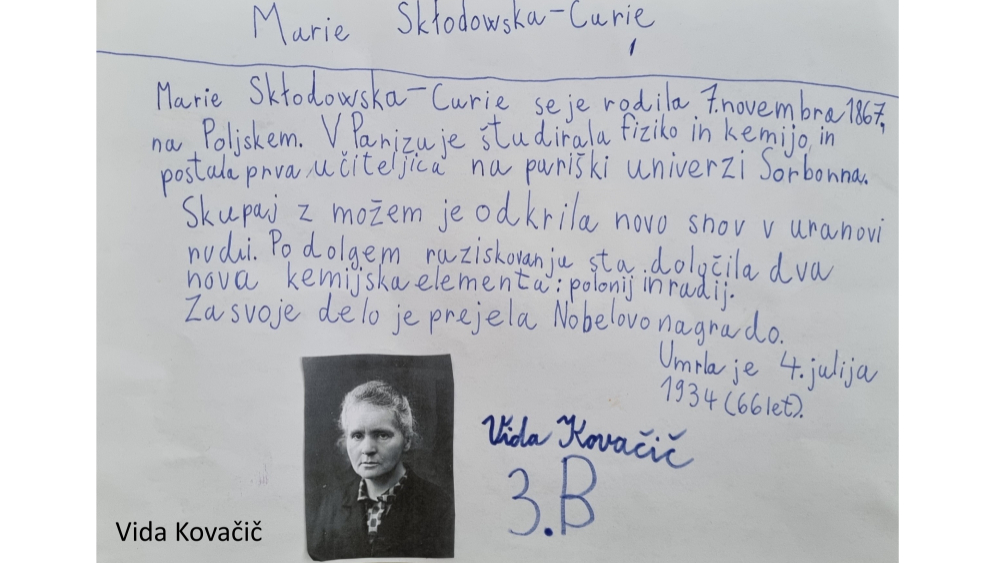 Marie Skłodowska-Curie
Marie Skłodowska-Curie se je rodila 7. novembra 1867,
na Poljskem. V Parizu je študirala fiziko in kemijo, in
postala prva učiteljica na pariški univerzi Sorbonna.
Skupaj z možem je odkrila novo snov v uranovi
rudi. Po dolgem raziskovanju sta določila dva
nova kemijska elementa: polonij in radij.
Za svoje delo je prejela Nobelovo nagrado.
Umrla je 4. julija
1934 (66 let).
Vida Kovačič
3.B
Vida Kovačič